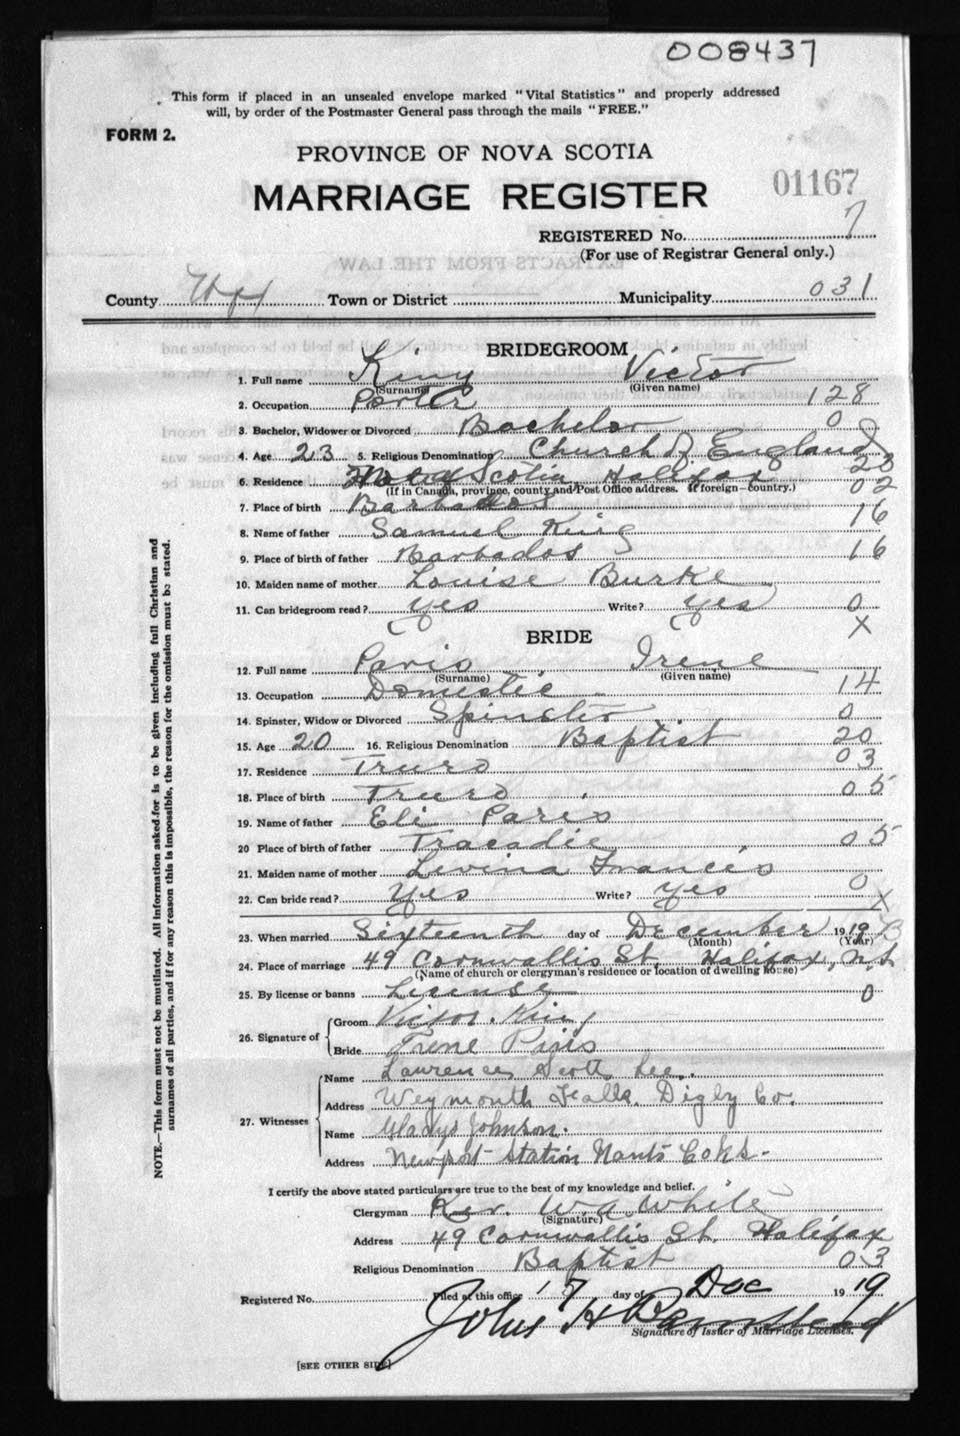 008437
This form if placed in an unsealed envelope marked "Vital Statistics" and properly addressed
will, by order of the Postmaster General pass through the mails "FREE."
FORM 2.
PROVINCE OF NOVA SCOTIA
MARRIAGE REGISTER 01167
REGISTERED No. 7
(For use of Registrar General only.)
County Hfx Town or District Municipality 031
BRIDEGROOM
1. Full name King Victor
(Surname) (Given name)
2. Occupation Porter 128
3. Bachelor, Widower or Divorced Bachelor 0
4. Age 23 5. Religious Denomination Church of England
6. Residence Nova Scotia Halifax 23
(If in Canada, province, county and Post Office address. If foreign—country.) 02
7. Place of birth Barbados
8. Name of father Samuel King 16
9. Place of birth of father Barbados 16
10. Maiden name of mother Louise Burke
11. Can bridegroom read? Yes Write? Yes 0
X
BRIDE
12. Full name Paris Irene
(Surname) (Given name)
13. Occupation Domestic 14
14. Spinster, Widow or Divorced Spinster 0
15. Age 20 16. Religious Denomination Baptist 20
17. Residence Truro 03
18. Place of birth Truro 05
19. Name of father Eli Paris
20 Place of birth of father Tracadie 05
21. Maiden name of mother Levina Francis
22. Can bride read? Yes Write? Yes 0
X
23. When married Sixteenth day of December 1919
(Month) (Year)
24. Place of marriage 49 Cornwallis St. Halifax, N.S.
(Name of church or clergyman's residence or location of dwelling house)
25. By license or banns License 0
26. Signature of Groom Victor King
Bride Irene Paris
27. Witnesses Name Lawrence Scott Lee.
Address Weymouth Falls, Digby Co.
Name Gladys Johnson.
Address Newport Station Hants Co NS.
I certify the above stated particulars are true to the best of my knowledge and belief.
Clergyman Rev. W. A. White
(Signature)
Address 49 Cornwallis St. Halifax
Religious Denomination Baptist 03
Registered No. Filed at this office 17 day of Dec 1919
John H Barnstead
Signature of Issuer of Marriage Licenses.
[SEE OTHER SIDE]
NOTE.—This form must not be mutilated. All information asked for is to be given including full Christian and
surnames of all parties, and if for any reason this is impossible, the reason for the omission must be stated.